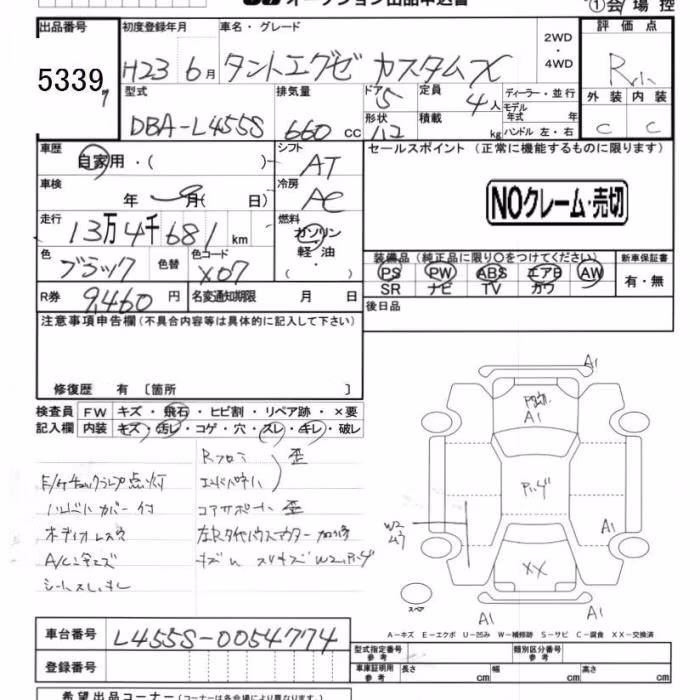 オークション出品申込書
①会場控
出品番号
5339
初度登録年月
H23 6月
車名・グレード
タントエグゼ カスタムX
2WD
・
4WD
評価点
R
外装 内装
C C
型式
DBA-L455S
排気量
660 cc
ドア 5
形状
定員
4人
積載
kg
ディーラー・並行
モデル
年式 年
ハンドル 左・右
車歴
自家用・( )
シフト
AT
車検
年 月( 日)
冷房
AC
走行
13万4千681km
燃料
ガソリン
軽油
・( )
色
ブラック
色替
色コード
X07
R券
9,460円
名変通知期限 月 日
セールスポイント (正常に機能するものに限ります)
NOクレーム・売切
装備品(純正品に限り○をつけてください)
PS PW ABS エアB AW
SR ナビ TV カワ
新車保証書
有・無
後日品
注意事項申告欄(不具合内容等は具体的に記入して下さい)
修復歴 有 〔箇所 〕
検査員
記入欄
FW キズ・飛石・ヒビ割・リペア跡・×要
内装 キズ・汚レ・コゲ・穴・スレ・キレ・破レ
歪
E/Gチェックランプ点灯
ハンドルカバー付
コアサポート 歪
オーディオレス
シートスレ
A1
A1
A1
A1
A1
A1
W2
XX
スペア
A-キズ E-エクボ U-凹み W-補修跡 S-サビ C-腐食 XX-交換済
車台番号
L455S-0054774
登録番号
型式指定番号
参考
類別区分番号
参考
車庫証明用
参考
長さ cm
幅 cm
高さ cm
希望出品コーナー(コーナーは各会場により異なります)